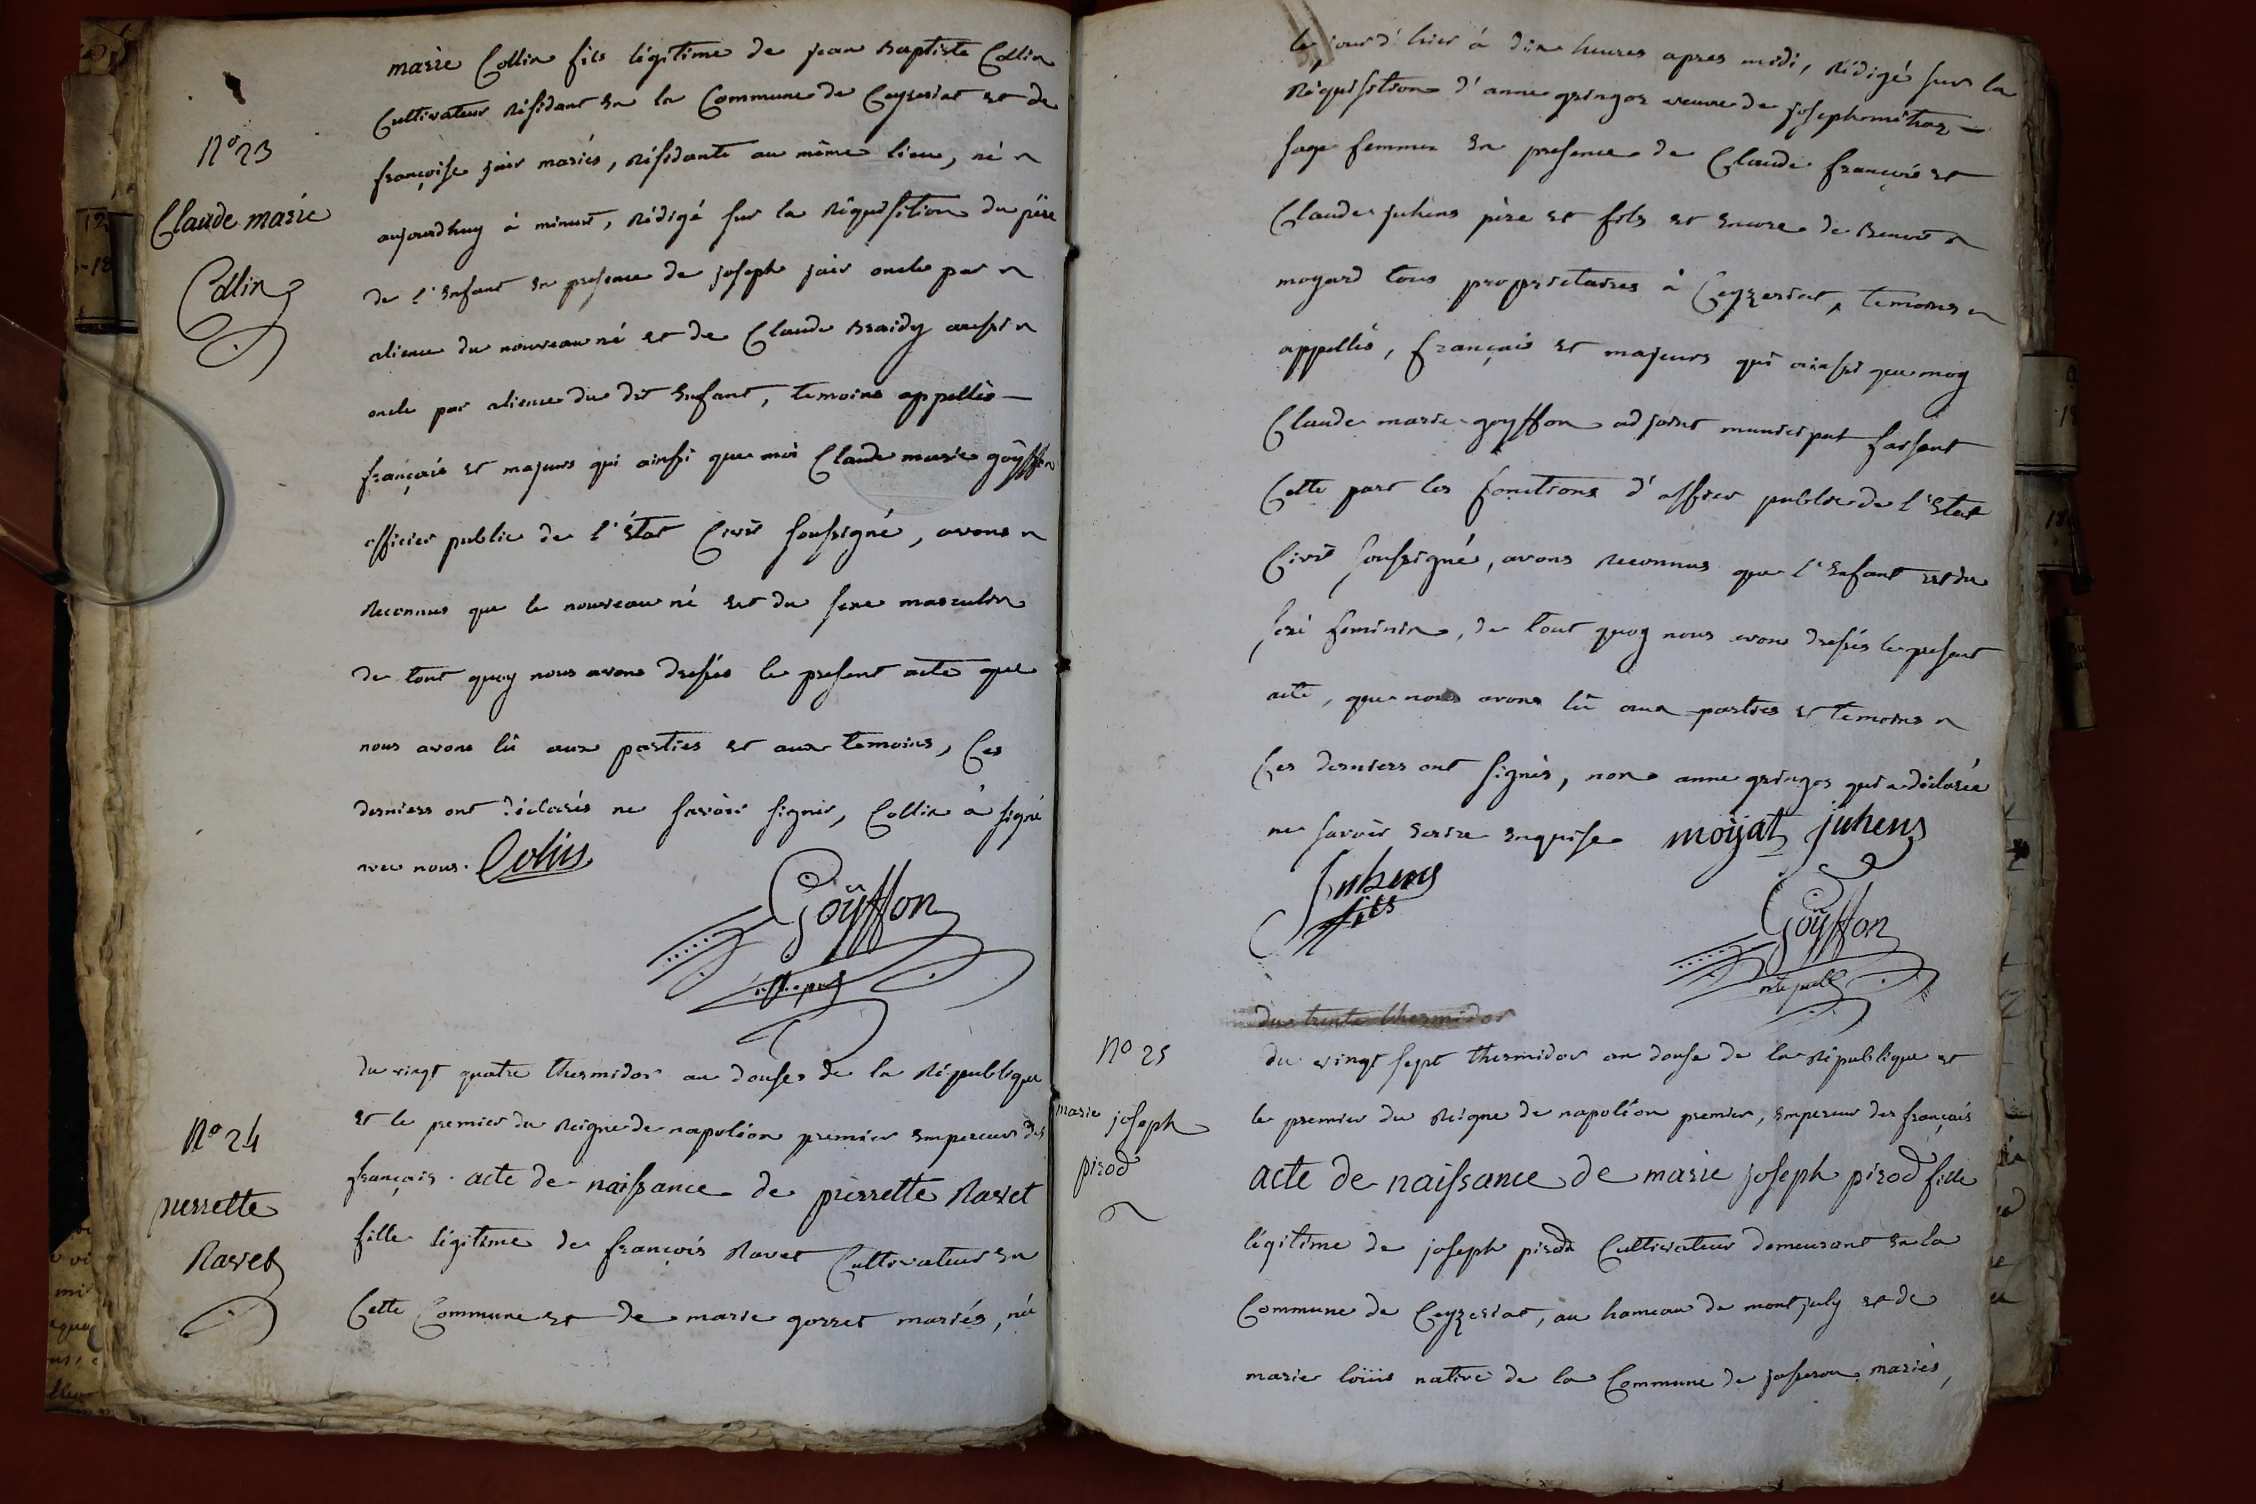 marie Collin fils légitime de jean Baptiste Collin
Cultivateur résidant en la Commune de Ceyzeriat et de
françoise jair mariés, résidante au même lieu, né
aujourdhuy à minuit, rédigé sur la réquisition du père
de l'enfant en presence de joseph jair oncle par
aliance du nouveau né et de Claude Braidy aussi
oncle par aliance du dit enfant, temoins appellés
français et majeurs qui ainsi que moi Claude marie goÿffon
officier public de l'état Civil soussigné, avons
reconnus que le nouveau né est du sexe masculin
de tout quoy nous avons dressés le present acte que
nous avons lû aux parties et aux temoins, Ces
derniers ont déclarés ne savoir signer, Collin à signé
avec nous. Colin
Goÿffon
N° 23
Claude marie
Collin
du vingt quatre thermidor an douses de la République
et le premier du Reigne de napoléon premier empereur des
français. acte de naissance de pierrette Ravet
fille légitime de françois Ravet Cultivateur en
Cette Commune et de marie gorret mariés, née
N° 24
pierrette
Ravet
le jour d'hier à dix heures apres midi, rédigé sur la
réquisition d'anne gringoz veuve de joseph
sage femme en presence de Claude françois et
Claude juhens père et fils et encore de Benoit
moyard tous proprietaires à Ceyzeriat, temoins
appellés, français et majeurs qui ainsi que moy
Claude marie goyffon adjoint municipal faisant
Cette part les fonctions d'officier public de l'Etat
Civil soussigné, avons reconnus que l'enfant est du
sexe feminin, de tout quoy nous avons dressés le present
acte, que nous avons lû aux parties et temoins
Ces derniers ont signés, non anne gringoz qui a déclarée
ne savoir ecrire enquise moÿat juhens
juhens
fils
Goÿffon
du trente thermidor
N° 25
marie joseph
pirod
du vingt sept thermidor an douse de la République et
le premier du Reigne de napoléon premier, empereur des français
acte de naissance de marie joseph pirod fille
légitime de joseph pirod Cultivateur demeurant en la
Commune de Ceyzeriat, au hameau de montjuly et de
marie loüis native de la Commune de jasseron mariés,